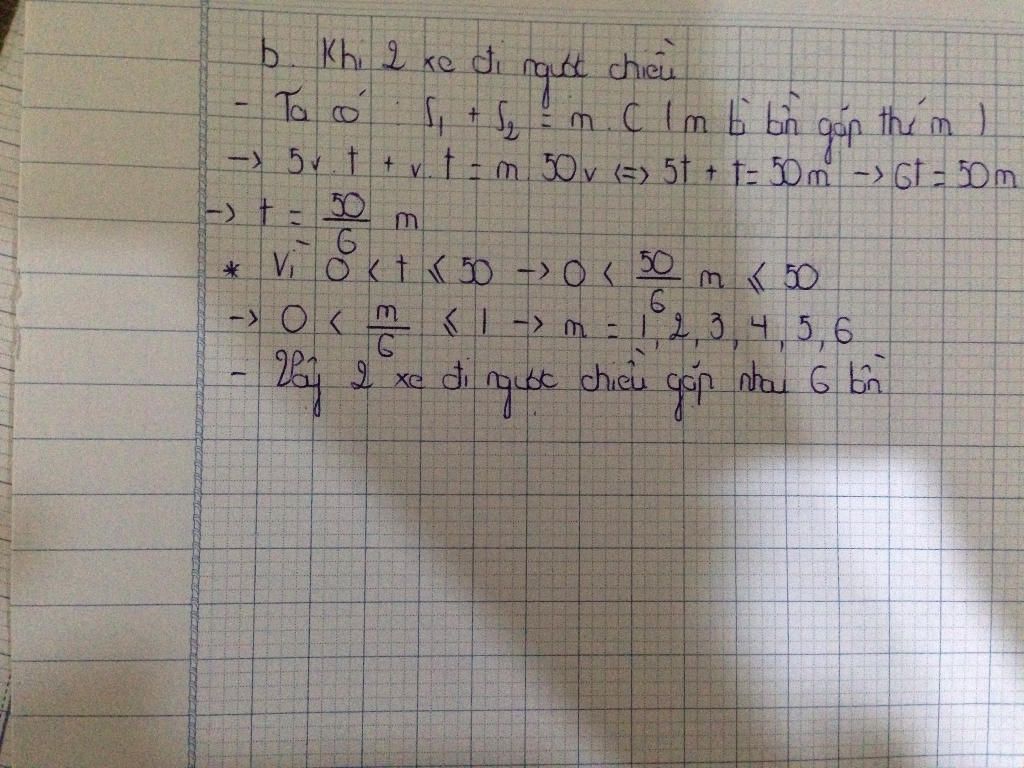 b. Khi 2 xe đi ngược chiều
- Ta có : S₁ + S₂ = m. C ( m là lần gặp thứ m )
-> 5v. t + v. t = m 50v <=> 5t + t = 50m -> 6t = 50m
-> t = 50/6 m
* Vì 0 < t ≤ 50 -> 0 < 50/6 m ≤ 50
-> 0 < m/6 ≤ 1 -> m = 1, 2, 3, 4, 5, 6
- Vậy 2 xe đi ngược chiều gặp nhau 6 lần